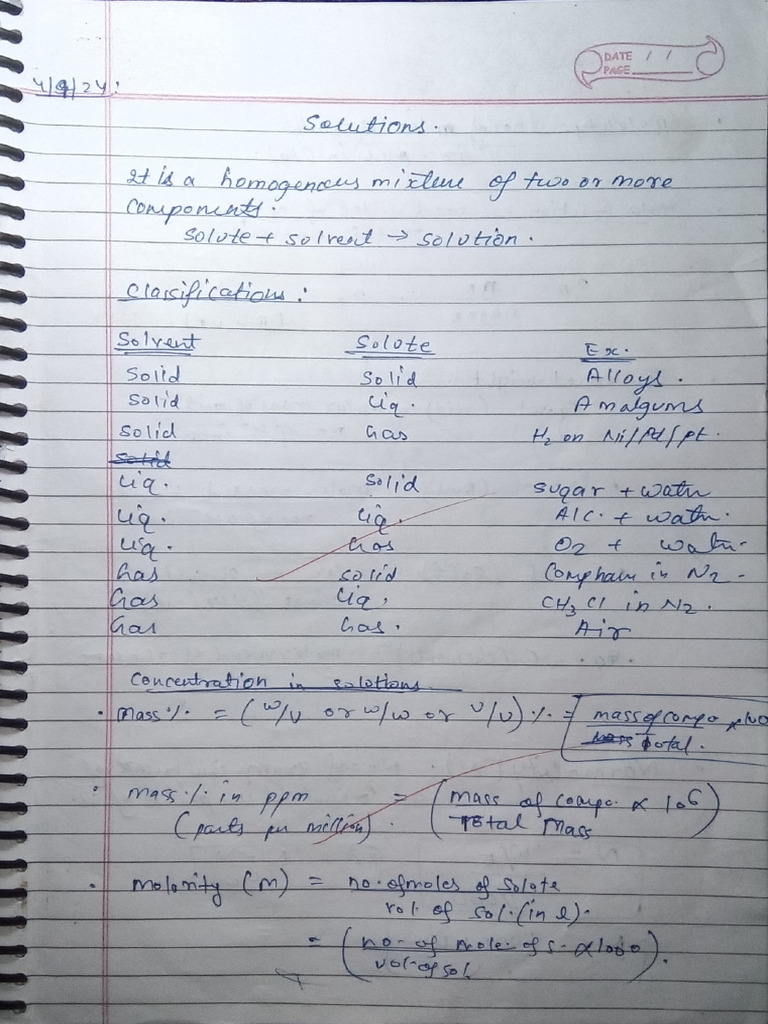 DATE / /
PAGE
4/9/24:
Solutions.
It is a homogenous mixture of two or more
components.
Solute + solvent → solution.
Classifications:
Solvent Solute Ex.
Solid Solid Alloys.
Solid Liq. Amalgums
Solid Gas H2 on Ni/Pd/pt.
Solid
Liq. Solid sugar + water
Liq. Liq. Alc. + water.
Liq. Gas O2 + water.
Gas solid Comphare in N2.
Gas Liq, CH3Cl in N2.
Gas Gas. Air
Concentration in solutions
• Mass % = (w/v or w/w or v/v) % = mass of compo x100
mass total.
• Mass % in ppm = (mass of compo. x 10^6)
(parts per million). Total Mass
• Molarity (M) = no. of moles of solute
vol. of sol. (in l).
= (no. of mole. of s. x1000).
vol. of sol.